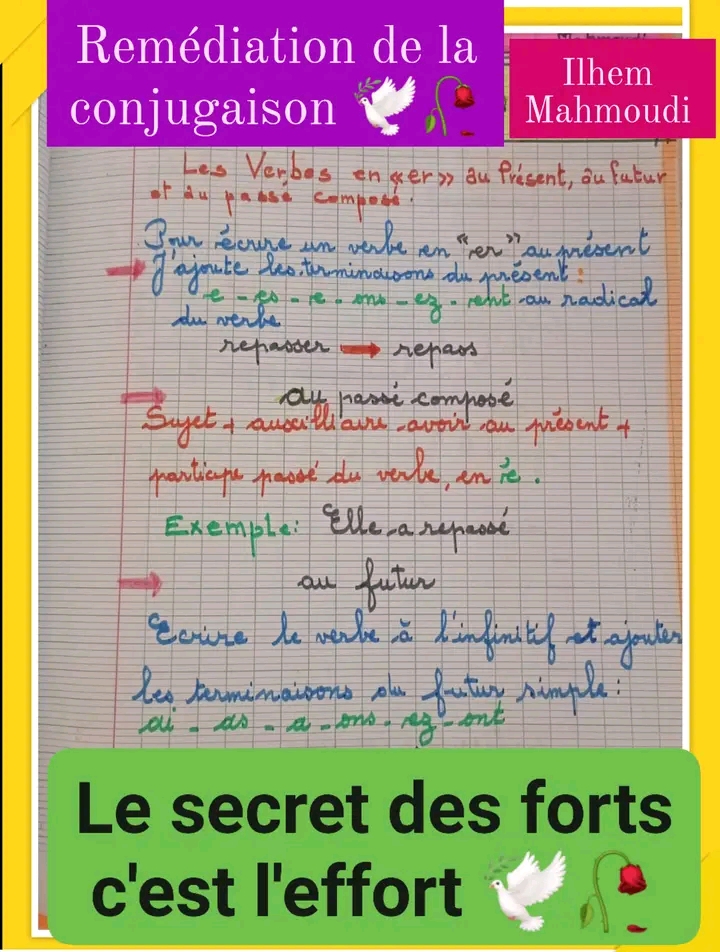 Remédiation de la
conjugaison 🕊️🥀
Ilhem
Mahmoudi
Les Verbes en «er» au Présent, au futur
et au passé composé.
Pour écrire un verbe en "er" au présent
J'ajoute les terminaisons du présent :
e - es - e - ons - ez - ent au radical
du verbe
repasser → repass
au passé composé
Sujet + auxilliaire avoir au présent +
participe passé du verbe, en é.
Exemple: Elle a repassé
au futur
Ecrire le verbe à l'infinitif et ajouter
les terminaisons du futur simple :
ai - as - a - ons - ez - ont
Le secret des forts
c'est l'effort 🕊️🥀